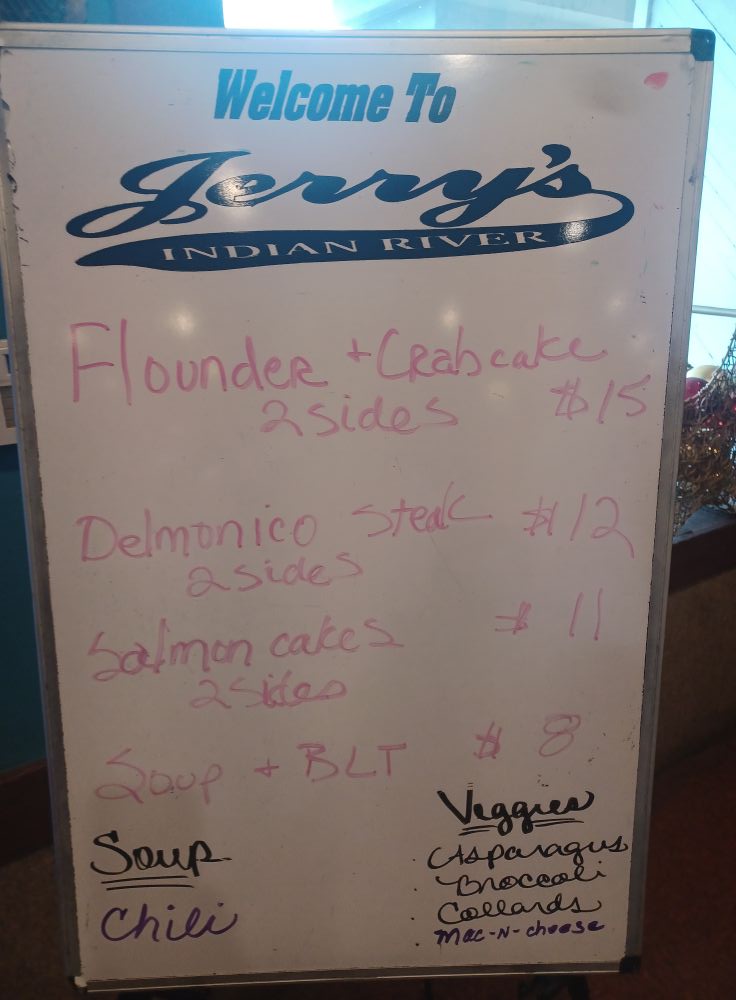 Welcome To
Jerry's
INDIAN RIVER
Flounder + Crabcake
2 sides $15
Delmonico Steak $12
2 sides
Salmon cakes $11
2 sides
Soup + BLT $8
Veggies
Soup
Asparagus
Broccoli
Chili
Collards
Mac-N-cheese